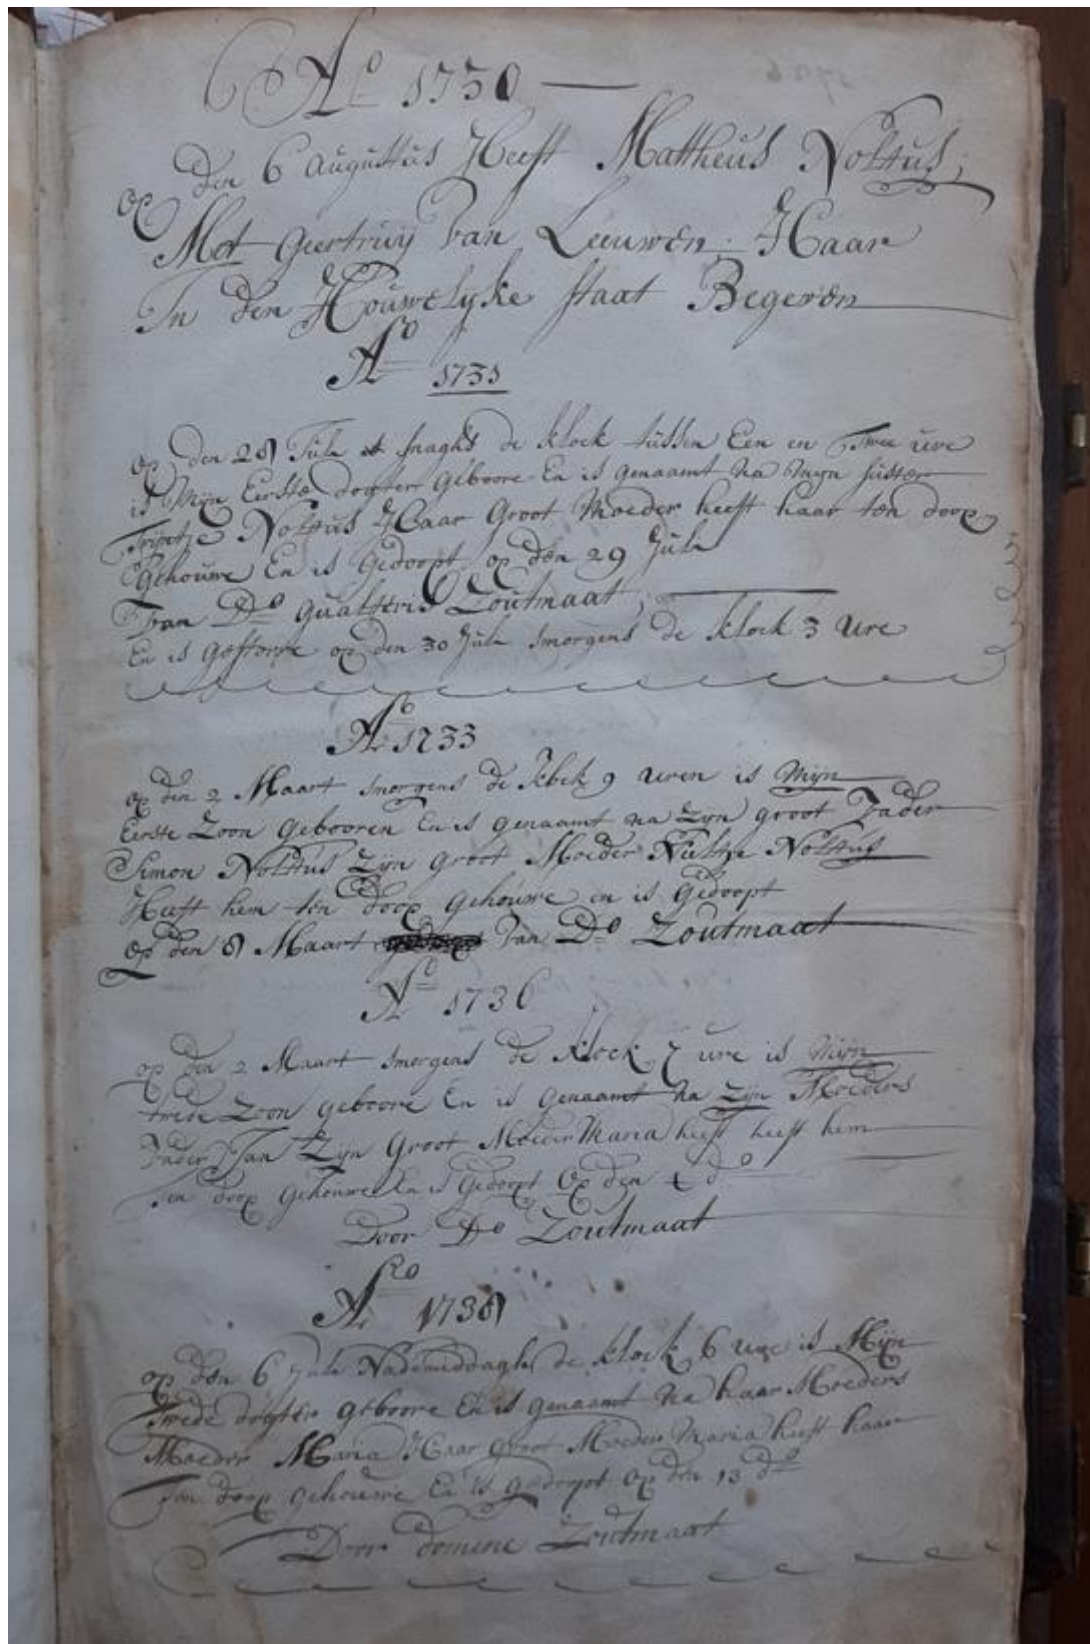 Ao 1730
Op den 6 Augustus Heeft Mattheus Noltus,
Met Geertruy Van Leeuwen, Haar
In den Houwelyke staat Begeven
Ao 1731
Op den 28 July snaghs de klock tussen Een en Twee ure
is Mijn Eerste dogter Geboore En is genaamt na mijn suster
Trijntje Noltus Haar Groot Moeder heeft haar ten doop
Gehouwe En is Gedoopt op den 29 July
Van Do Gualteris Zoutmaat
En is gestorve op den 30 July smorgens de klock 3 Ure
Ao 1733
Op den 2 Maart smorgens de klock 9 uren is Mijn
Eerste Zoon Gebooren En is genaamt na Zyn groot Vader
Simon Noltus Zijn Groot Moeder Noltus
Heeft hem ten doop gehouwe en is Gedoopt
Op den 8 Maart Van Do Zoutmaat
Ao 1736
op den 2 Maart smorgens de klock 7 ure is Mijn
twede Zoon geboore En is Genaamt na Zijn Moeders
Vader Jan Zijn Groot Moeder Maria heeft heeft hem
ten doop gehouwe En is Gedoopt Op den 4 do
Door Do Zoutmaat
Ao 1738
op den 6 July Nademiddagh de klock 6 ure is Mijn
twede dogter geboore En is genaamt na haar Moeders
Moeder Maria Haar groot Moeder Maria heeft haar
ten doop gehouwe En is gedoopt Op den 13 do
Door domine Zoutmaat